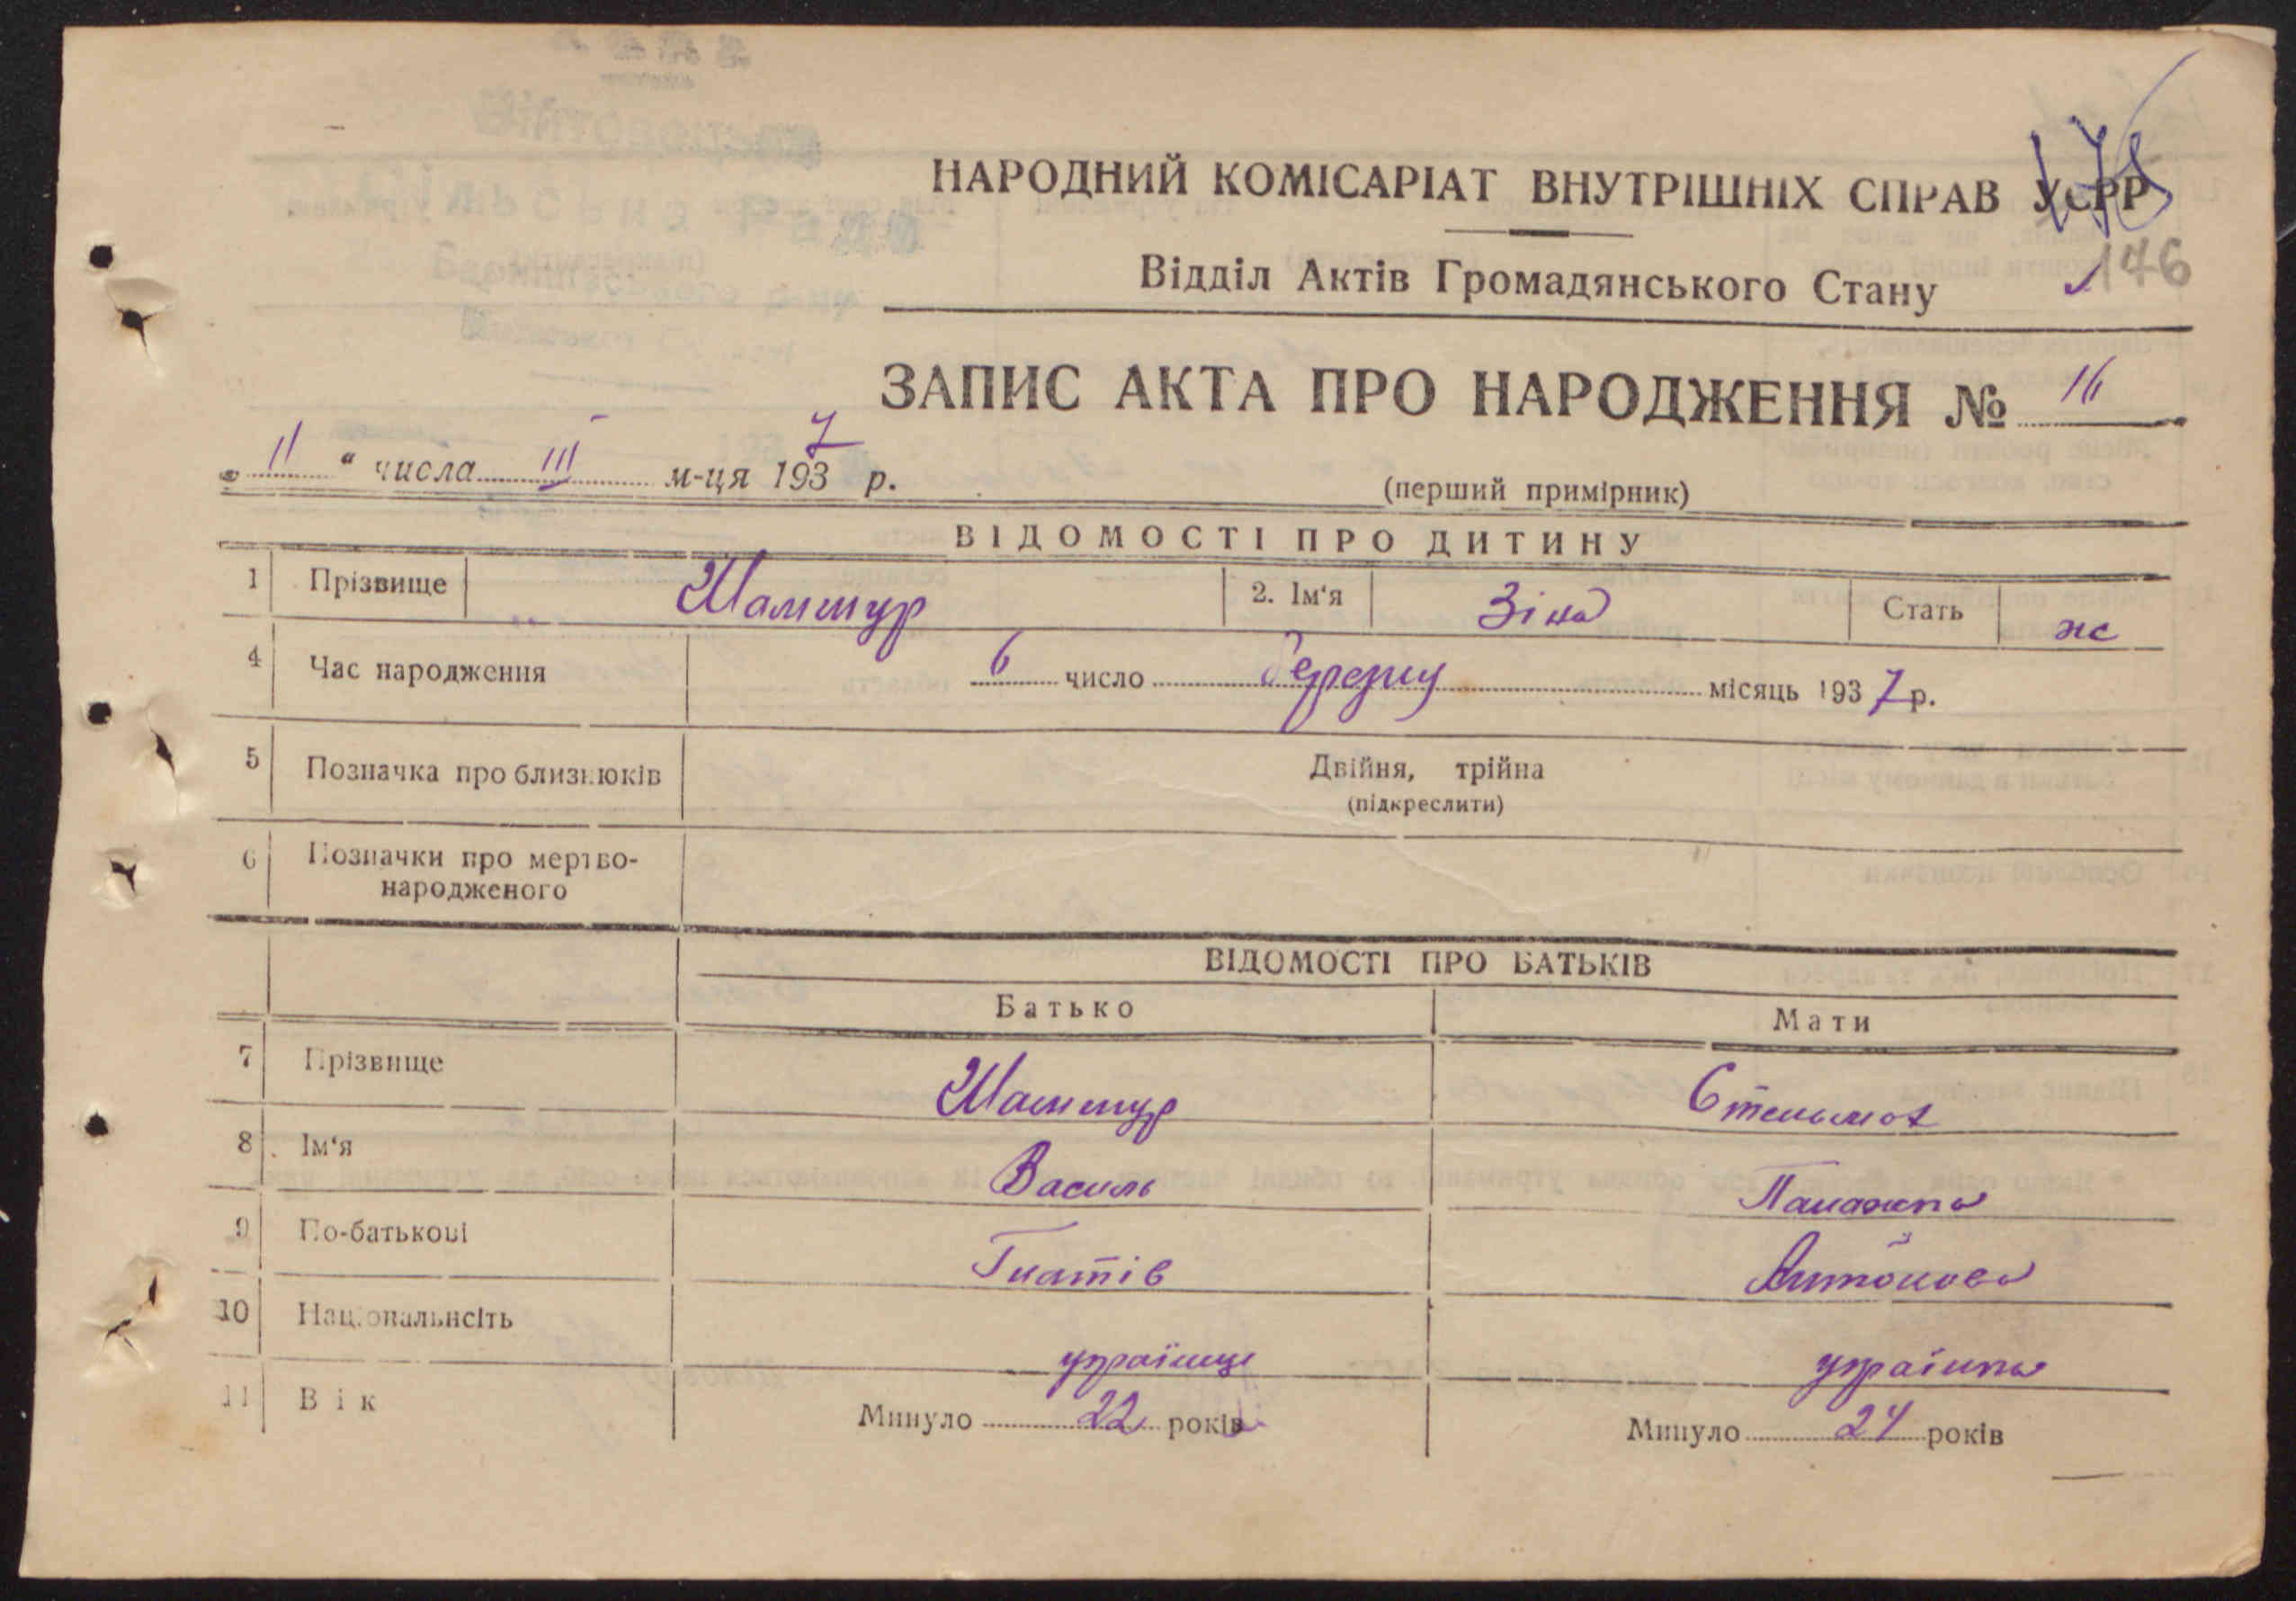 НАРОДНИЙ КОМІСАРІАТ ВНУТРІШНІХ СПРАВ УСРР
Відділ Актів Громадянського Стану 146
ЗАПИС АКТА ПРО НАРОДЖЕННЯ № 16
„ 11 “ числа III м-ця 1937 р.
(перший примірник)
ВІДОМОСТІ ПРО ДИТИНУ
1 Прізвище Шамшур 2. Ім‘я Зіна Стать ж
4 Час народження 6 число березня місяць 1937 р.
5 Позначка про близнюків Двійня, трійна
(підкреслити)
6 Позначки про мертво-
народженого
ВІДОМОСТІ ПРО БАТЬКІВ
Батько Мати
7 Прізвище Шамшур
8 Ім‘я Василь
9 По-батькові Гнатів Антонова
10 Національнсіть українц українка
11 Вік Минуло 22 років Минуло 24 років